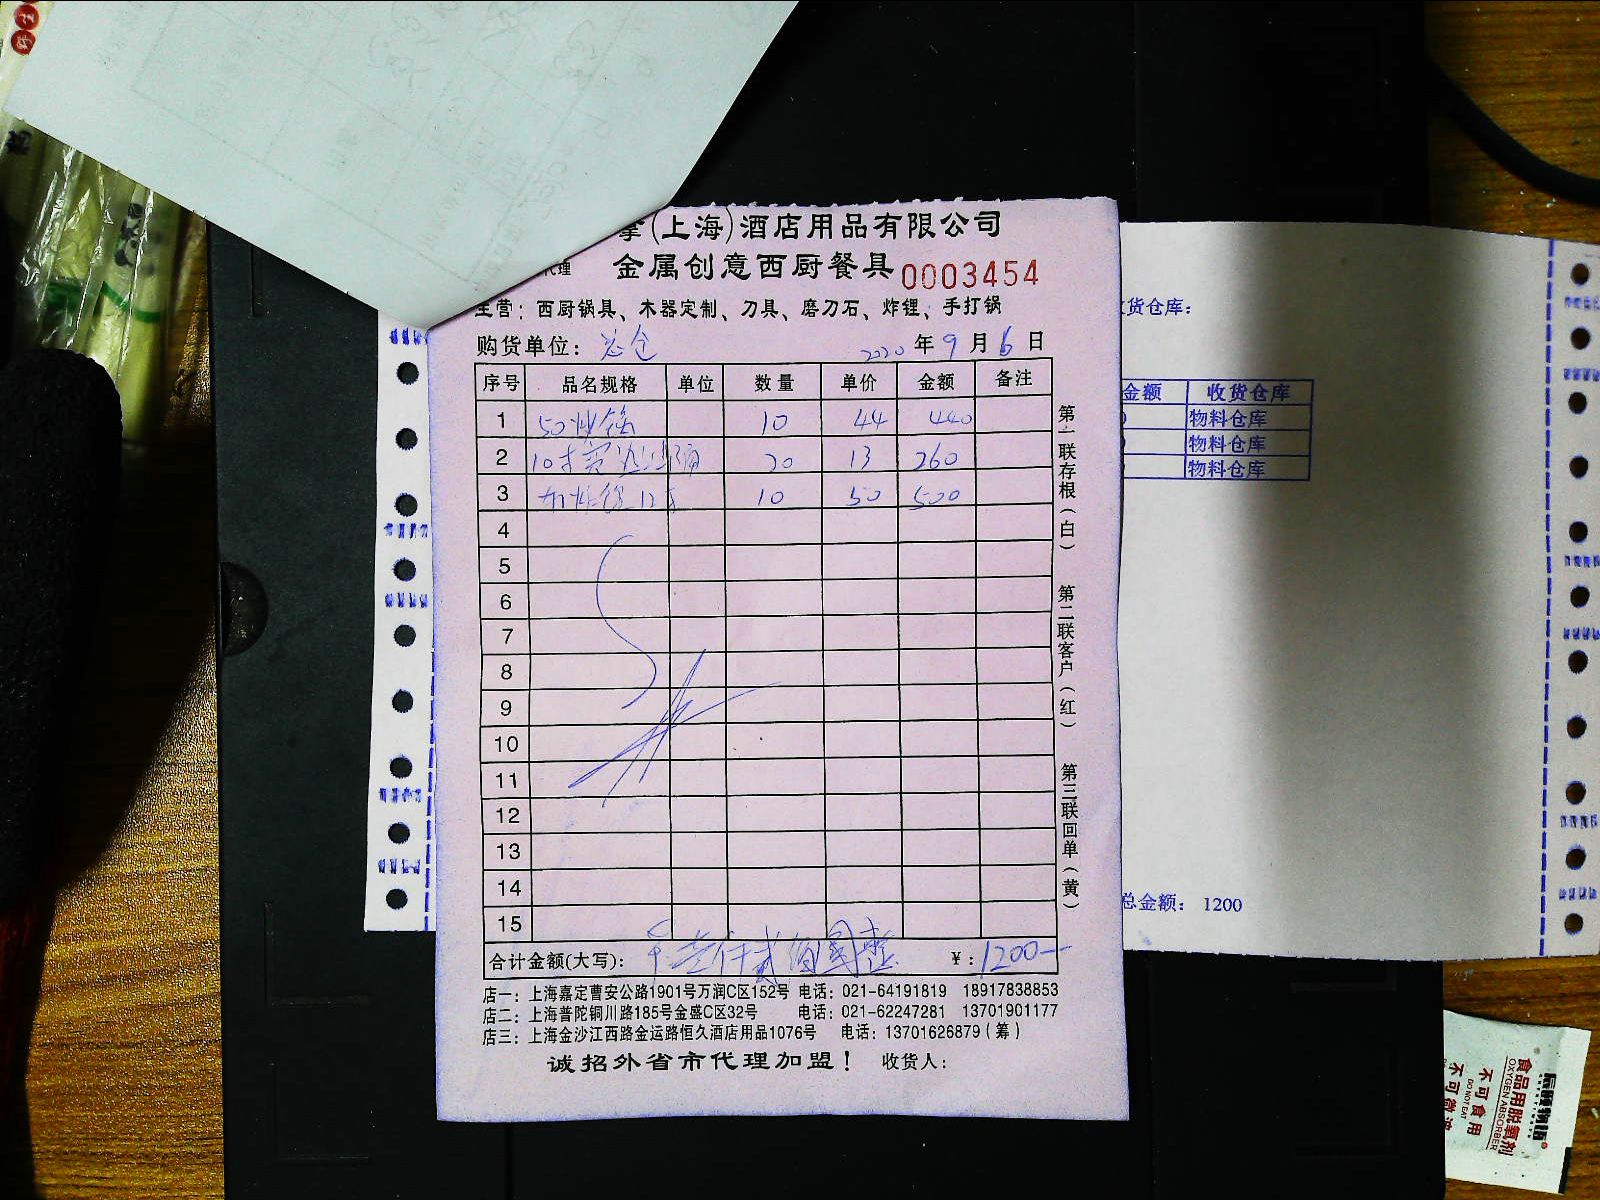 (上海)酒店用品有限公司
代理 金属创意西厨餐具 0003454
主营：西厨锅具、木器定制、刀具、磨刀石、炸锂、手打锅
购货单位：总仓 2020 年 9 月 6 日
序号 品名规格 单位 数量 单价 金额 备注
1 50炒锅 10 44 440
2 10寸 20 13 260
3 10 50 500
4
5
6
7
8
9
10
11
12
13
14
15
合计金额(大写)： 壹仟贰佰圆整 ¥：1200—
店一：上海嘉定曹安公路1901号万润C区152号 电话：021-64191819 18917838853
店二：上海普陀铜川路185号金盛C区32号 电话：021-62247281 13701901177
店三：上海金沙江西路金运路恒久酒店用品1076号 电话：13701626879（筹）
诚招外省市代理加盟！ 收货人：
第一联存根（白）
第二联客户（红）
第三联回单（黄）
货仓库：
金额 收货仓库
物料仓库
物料仓库
物料仓库
总金额： 1200
食品用脱氧剂
OXYGEN ABSORBER
不可食用
DO NOT EAT